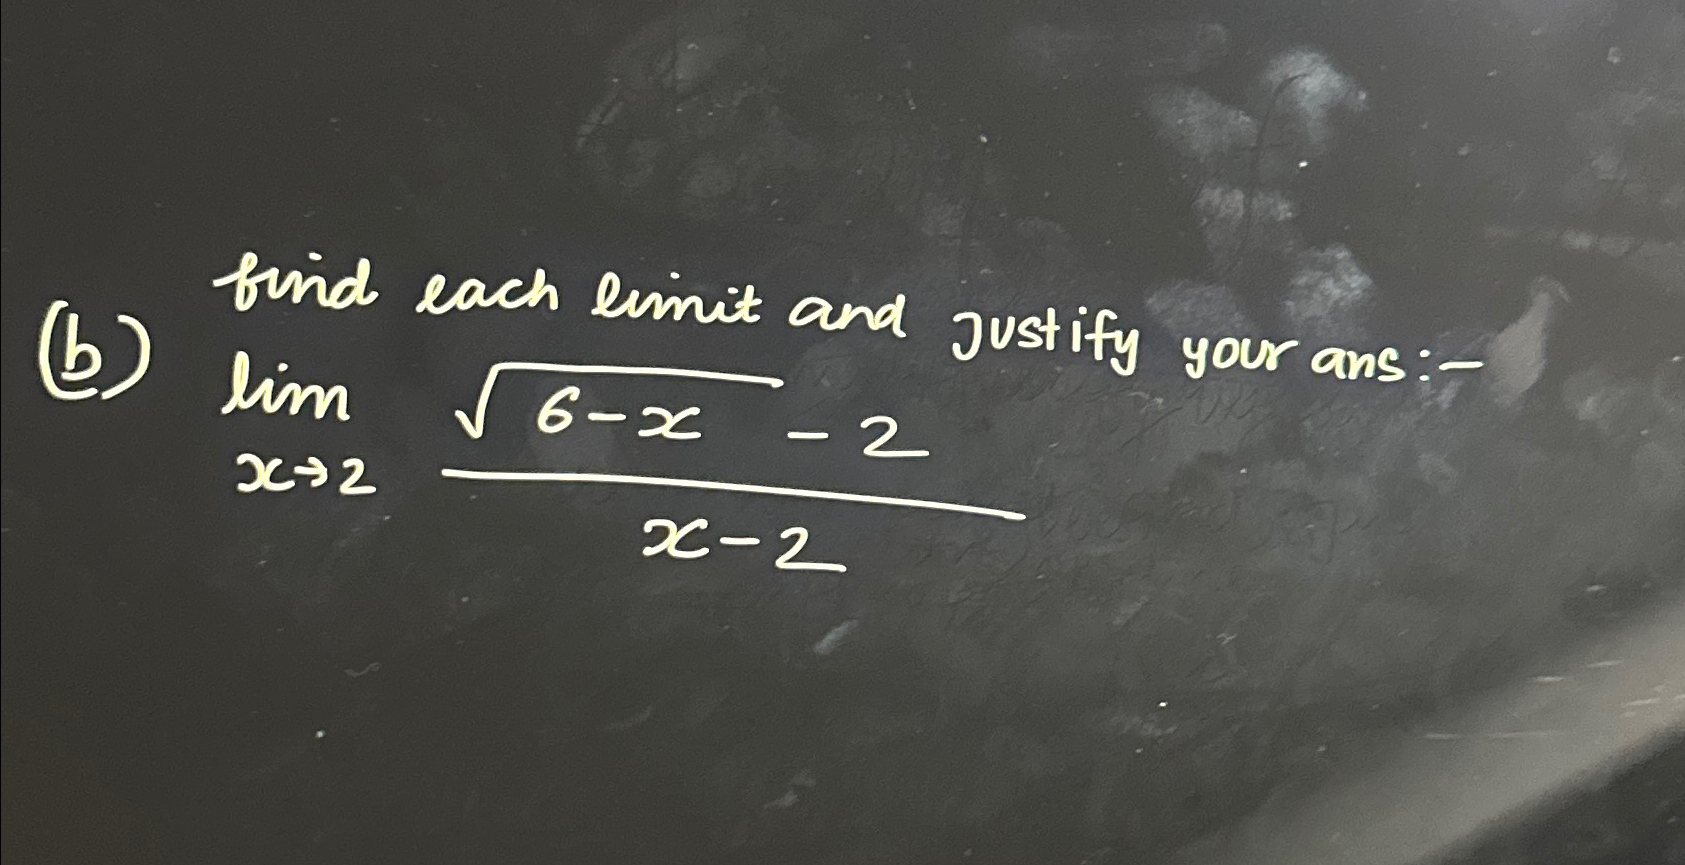 find each limit and justify your ans:-
(b) lim √6-x - 2
x→2 x-2